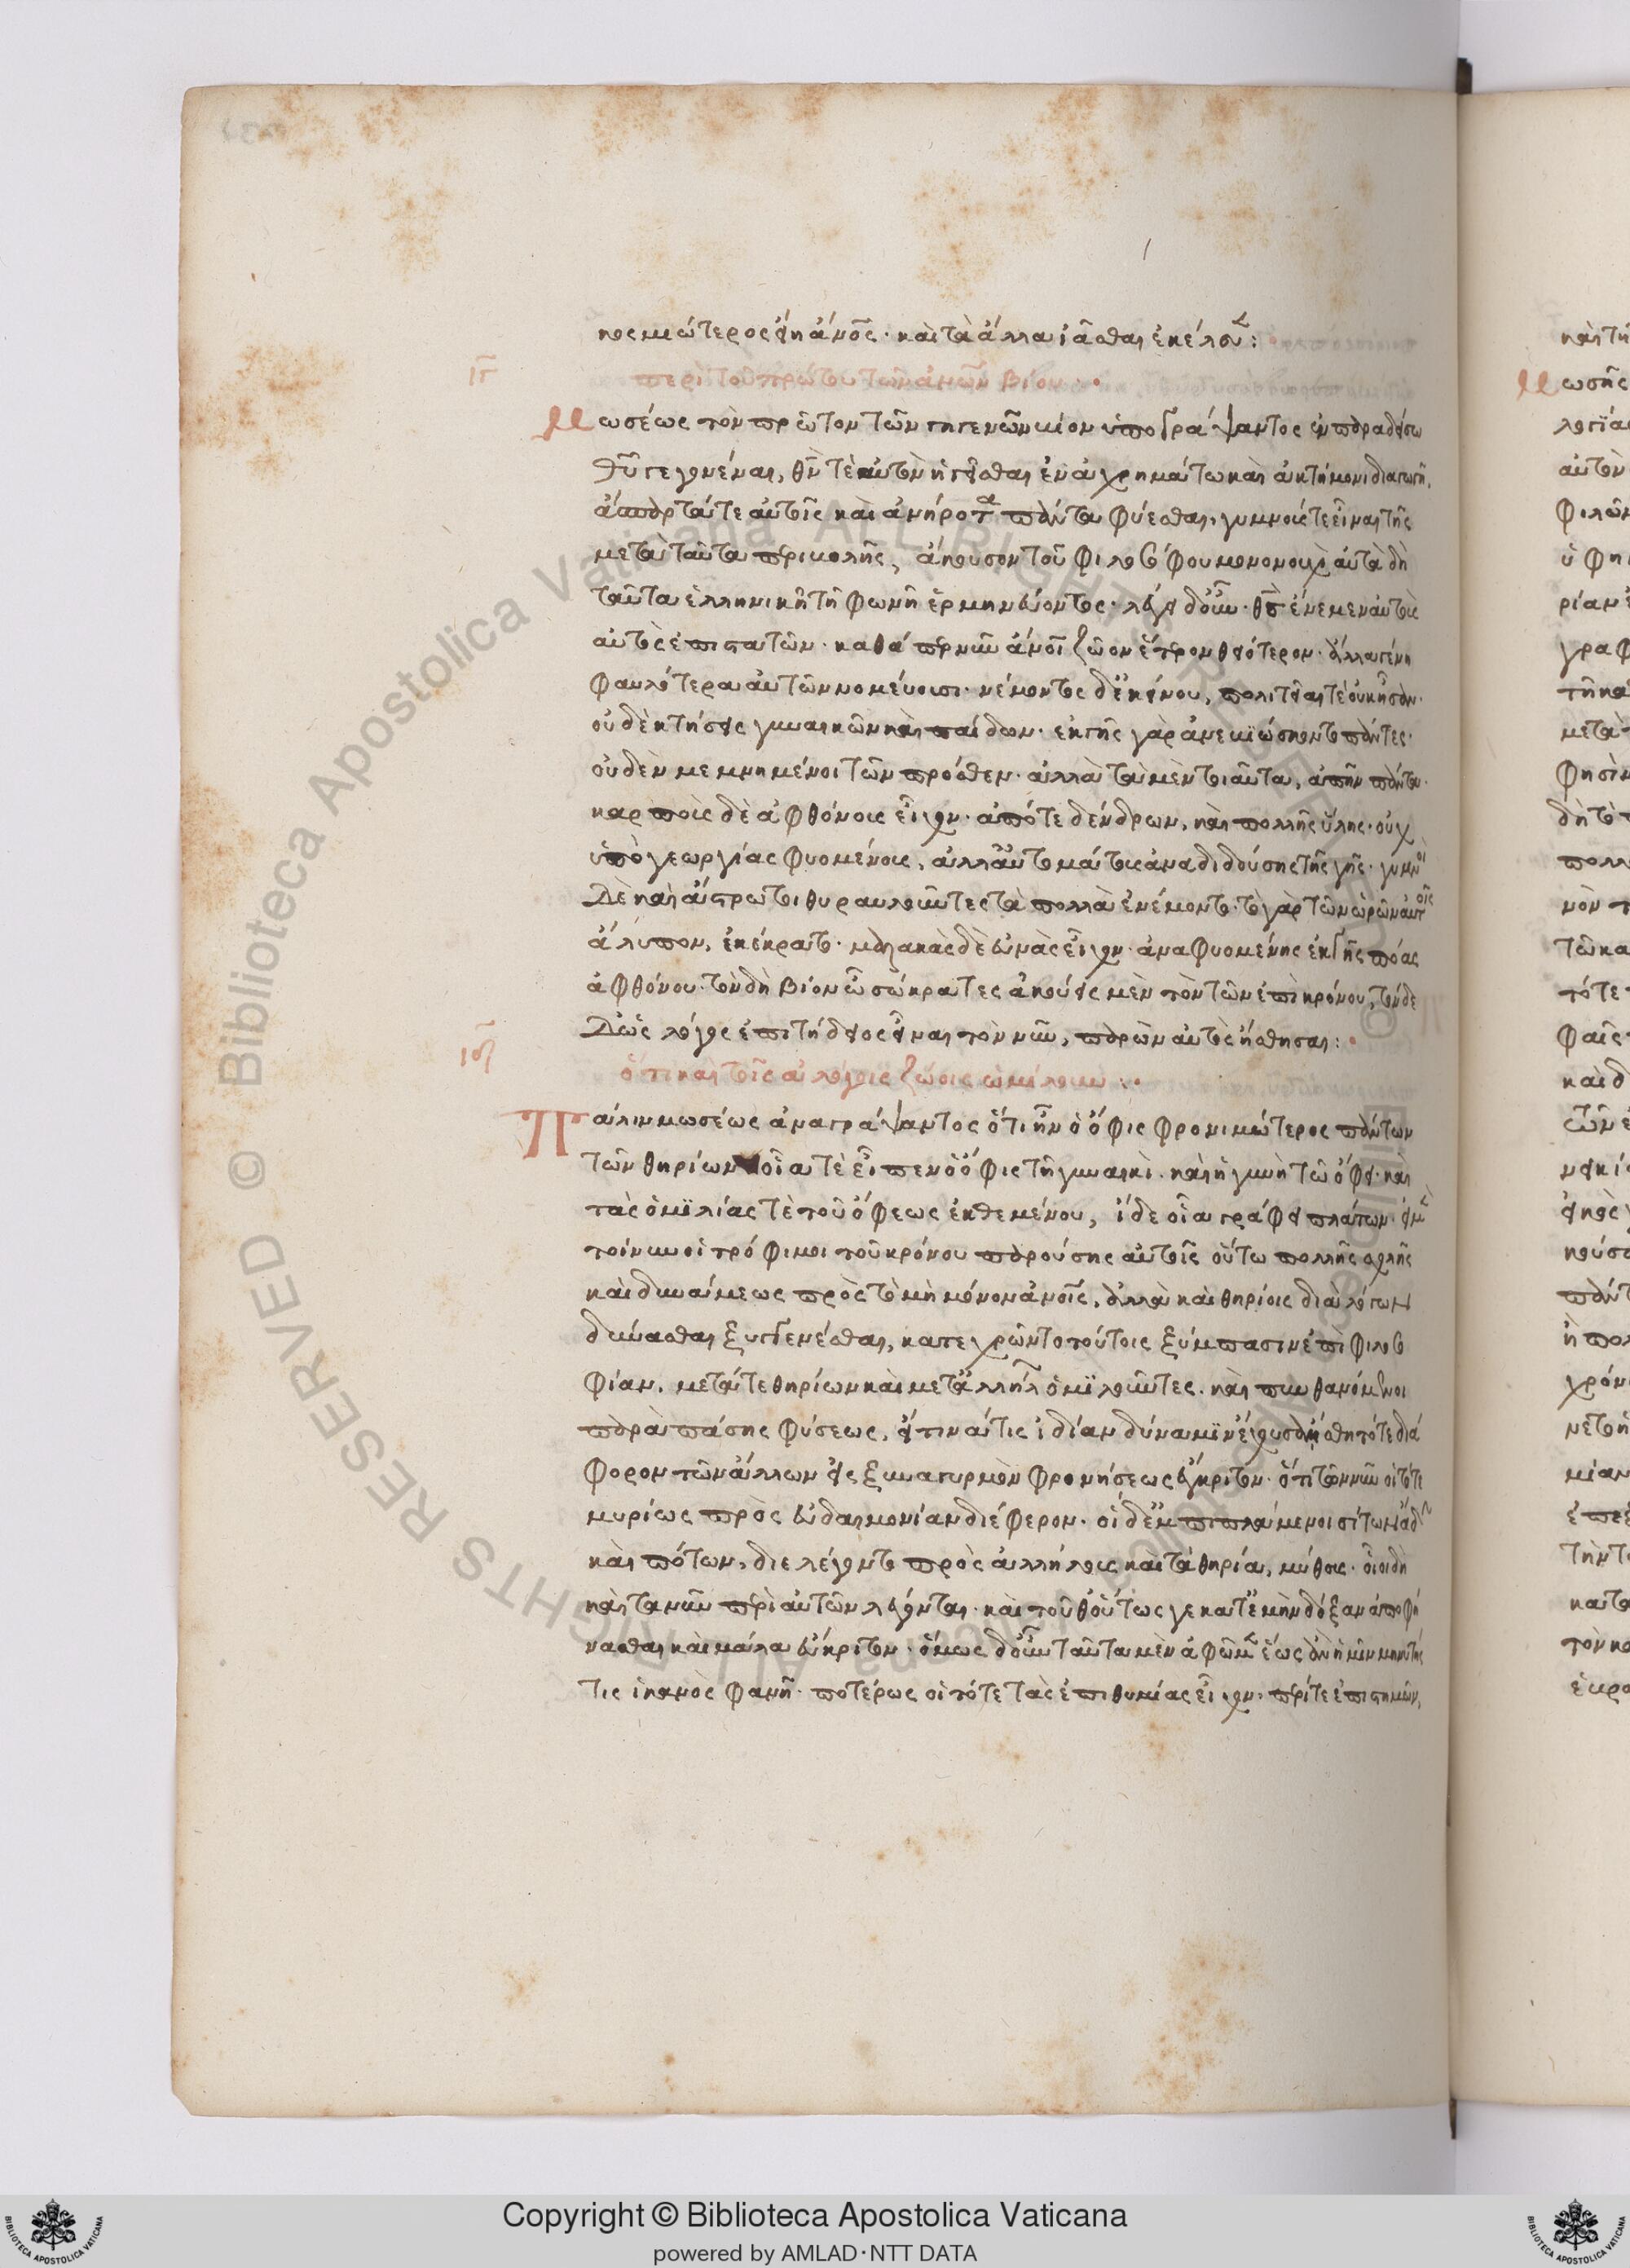 κοσμιώτερος εἴη ἄνος· καὶ τὰ ἄλλα ἰᾶσθαι ἐκείνου:
ιγ
περὶ τοῦ πρώτου τῶν ἀνων βίου
Μωσέως τὸν πρῶτον τῶν γηγενῶν βίον ὑπογράψαντος ἐν παραδείσω
θυ γεγονέναι, θν τὲ αὐτῶν ἡγεῖσθαι ἐν ἀχρημάτω καὶ ἀκτήμονι διαγωγῆ,
ἄσπαρτά τε αὐτοῖς καὶ ἀνήροτα πάντα φύεσθαι, γυμνούς τε εἶναι τῆς
μετὰ ταῦτα περιβολῆς, ἄκουσον τοῦ φιλοσόφου μονονουχὶ αὐτὰ δὴ
ταῦτα ἑλληνικῆ τῆ φωνῆ ἑρμηνεύοντος· λέγει δ' οὖν· θς ἔνεμεν αὐτοὺς
αὐτὸς ἐπιστατῶν· καθάπερ νῦν ἄνοι ζῶον ἕτερον θειότερον· ἄλλα γένη
φαυλότερα αὐτῶν νομεύουσι· νέμοντος δ' ἐκείνου, πολιτεῖαί τε οὐκ ἦσαν·
οὐδὲ κτήσεις γυναικῶν καὶ παίδων· ἐκ γῆς γὰρ ἀνεβιώσκοντο πάντες·
οὐδὲν μεμνημένοι τῶν πρόσθεν· ἀλλὰ τὰ μὲν τοιαῦτα, ἀπῆν πάντα·
καρποὺς δὲ ἀφθόνους εἶχον· ἀπό τε δένδρων, καὶ πολλῆς ὕλης· οὐχ
ὑπὸ γεωργίας φυομένους, ἀλλ' αὐτομάτους ἀναδιδούσης τῆς γῆς· γυμνοὶ
Δὲ καὶ ἄστρωτοι θυραυλοῦντες τὰ πολλὰ ἐνέμοντο· τὸ γὰρ τῶν ὡρῶν αὐτοῖς
ἄλυπον, ἐκέκρατο· μαλακὰς δὲ εὐνὰς εἶχον· ἀναφυομένης ἐκ γῆς πόας
ἀφθόνου· τὸν δὴ βίον ὦ σώκρατες ἀκούεις μὲν τὸν τῶν ἐπὶ κρόνου, τόνδε
Δ' ὡς λόγος ἐπιτήδειος εἶναι τὸν νῦν, παρὼν αὐτὸς ᾔσθησαι:
ιδ
ὅτι καὶ τοῖς ἀλόγοις ζώοις ὡμίλουν:
Πάλιν μωσέως ἀναγράψαντος ὅτι ἦν ὁ ὄφις φρονιμώτερος πάντων
τῶν θηρίων οἷα τὲ εἶπεν ὁ ὄφις τῆ γυναικὶ. καὶ ἡ γυνὴ τῶ ὄφει· καὶ
τὰς ὁμιλίας τὲ τοῦ ὄφεως ἐκθεμένου, ἴδε οἷα γράφει πλάτων· εἰ μὲν
τοίνυν οἱ τρόφιμοι τοῦ κρόνου παρούσης αὐτοῖς οὕτω πολλῆς σχολῆς
καὶ δυνάμεως πρὸς τὸ μὴ μόνον ἀνοις, ἀλλὰ καὶ θηρίοις διὰ λόγων
δύνασθαι ξυγγενέσθαι, κατεχρῶντο τούτοις ξύμπασιν ἐπὶ φιλοσο
φίαν. μετά τε θηρίων καὶ μετ' ἀλλήλων ὁμιλοῦντες. καὶ πυνθανόμενοι
παρὰ πάσης φύσεως, εἴ τινά τις ἰδίαν δύναμιν ἔχουσαν ᾔσθητό τε διά
φορον τῶν ἄλλων εἰς ξυναγυρμὸν φρονήσεως εὔκριτον· ὅτι τῶν νῦν οἱ τότε
μυρίως πρὸς εὐδαιμονίαν διέφερον. οἱ δ' ἐμπιπλάμενοι σίτων ἅδην
καὶ πότων, διελέγοντο πρὸς ἀλλήλους καὶ τὰ θηρία, μύθους· οἷοι δὴ
καὶ τανῦν περὶ αὐτῶν λέγονται· καὶ τοῦθ' οὕτως γε κατ' ἐμὴν δόξαν ἀποφή
νασθαι καὶ μάλα εὔκριτον· ὅμως δ' οὖν ταῦτα μὲν ἀφῶμεν ἕως ἂν ἡμῖν μηνυτής
τις ἱκανὸς φανῆ· ποτέρως οἱ τότε τὰς ἐπιθυμίας εἶχον· περί τε ἐπιστημῶν,
Copyright © Biblioteca Apostolica Vaticana
powered by AMLAD·NTT DATA